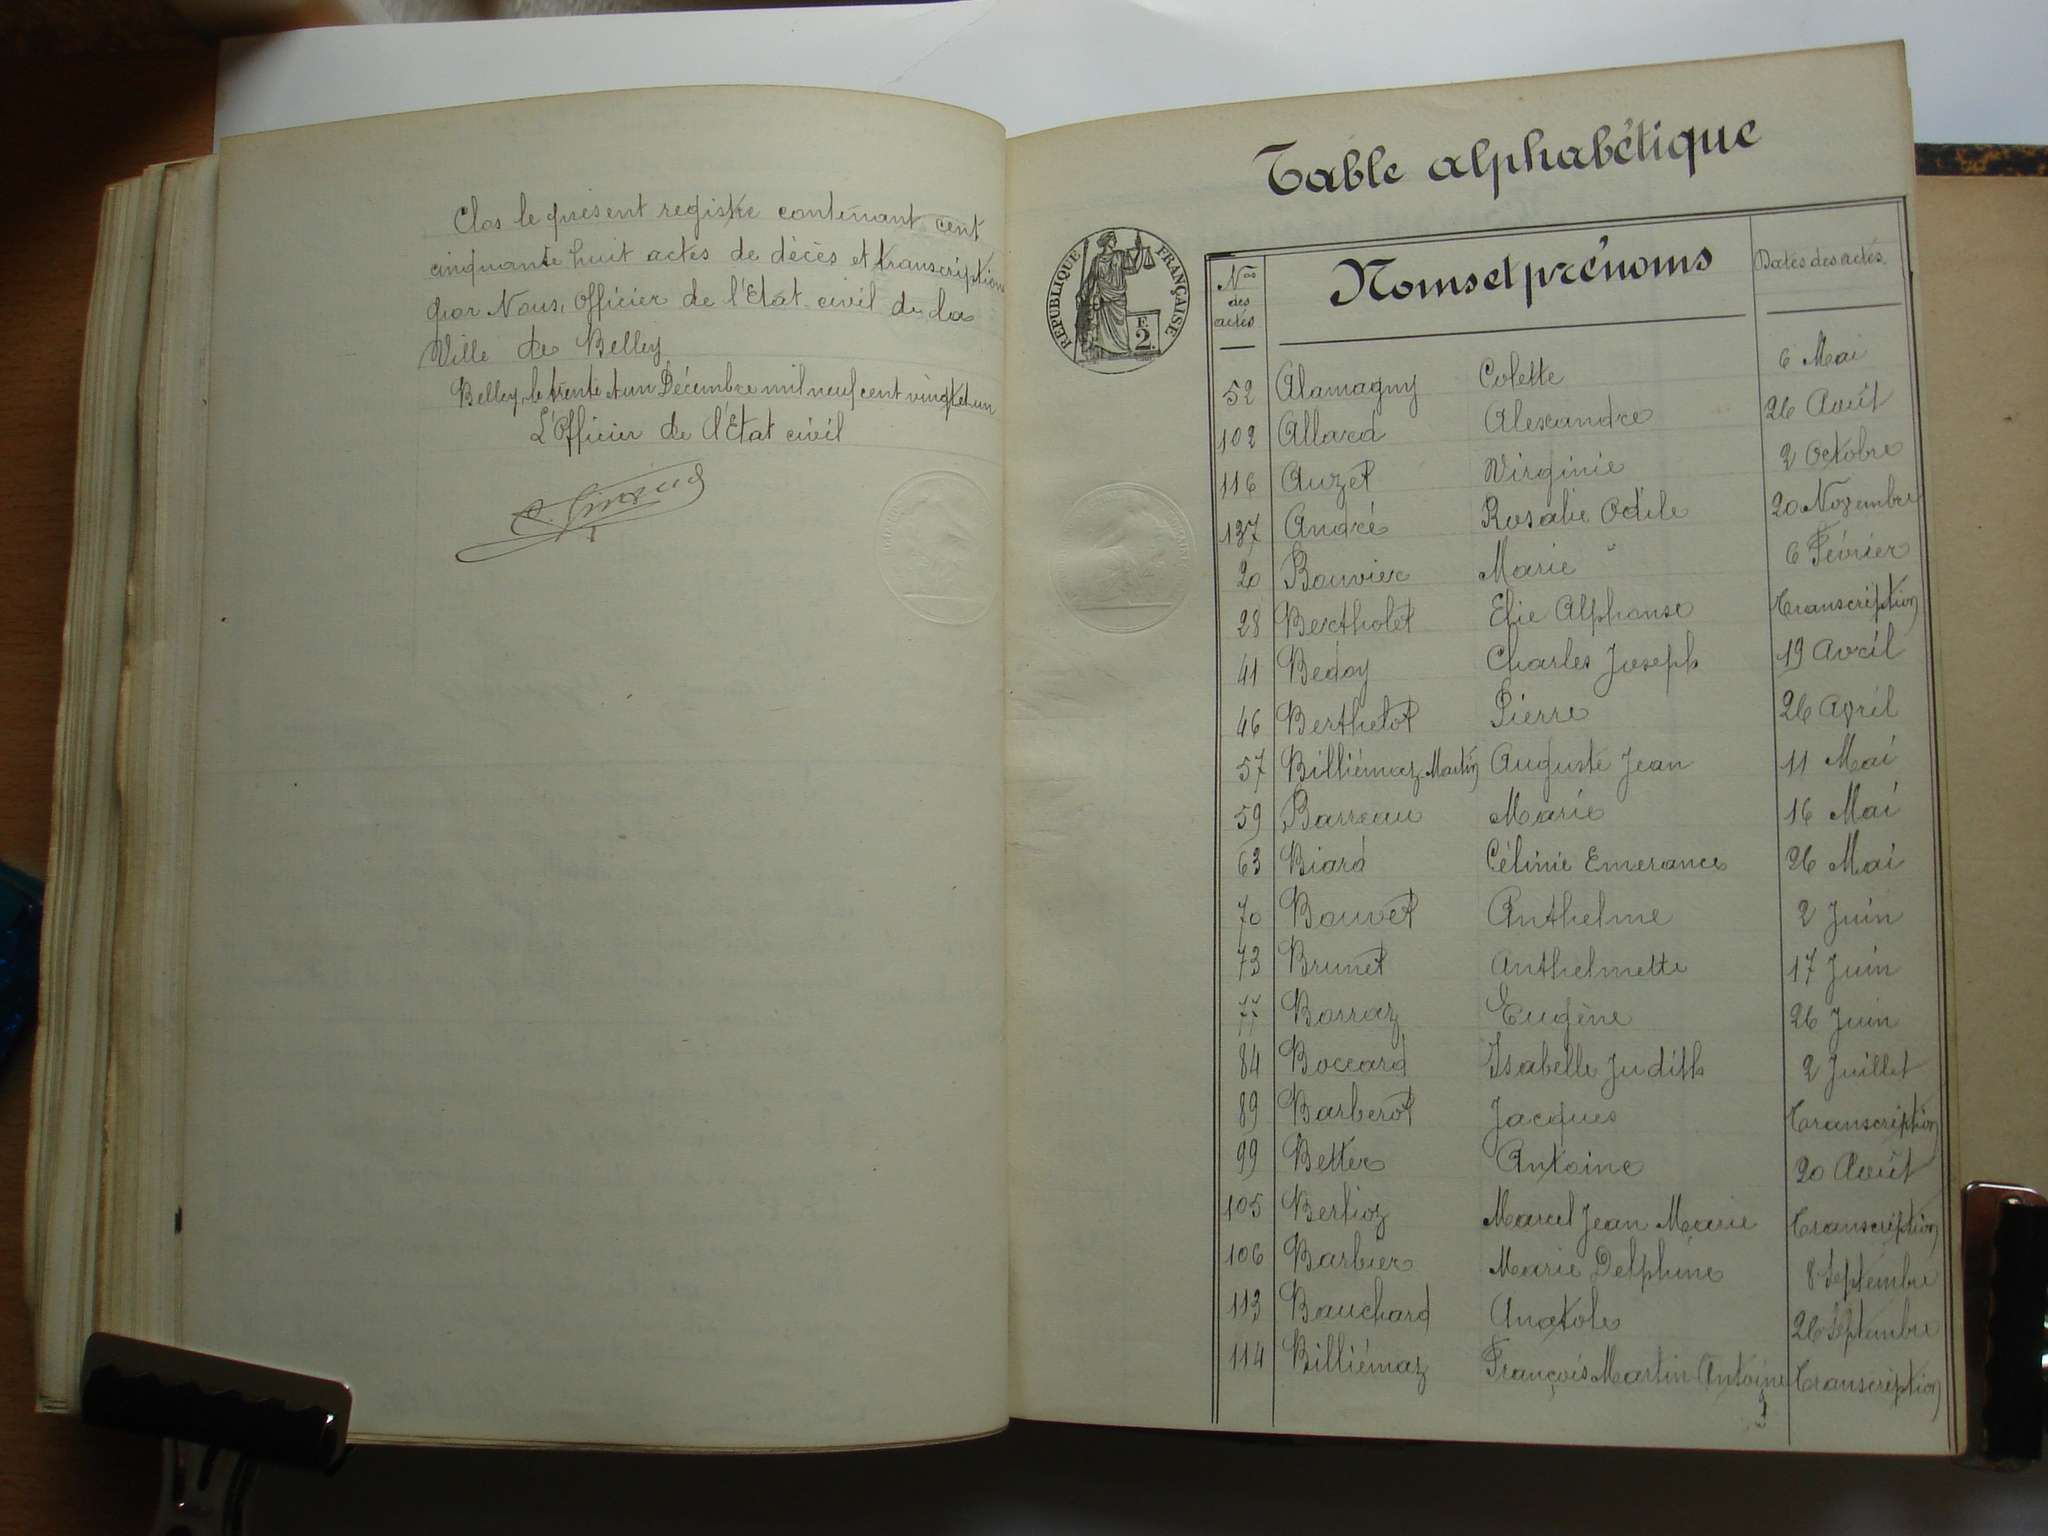 Clos le présent registre contenant cent
cinquante huit actes de décès et transcriptions
par Nous, Officier de l'Etat civil de la
Ville de Belley
Belley, le trente et un Décembre mil neuf cent vingt et un
L'Officier de l'Etat civil
Table alphabétique
RÉPUBLIQUE FRANÇAISE
F
2
Nos des actes Noms et prénoms Dates des actes
52 Alamagny Colette 6 Mai
102 Allard Alexandre 26 Août
116 Auzet Virginie 2 Octobre
137 André Rosalie Odile 20 Novembre
20 Bouvier Marie 6 Février
28 Bertholet Elie Alphonse Transcription
41 Bedoy Charles Joseph 19 Avril
46 Berthelot Pierre 26 Avril
57 Billiémaz Martin Auguste Jean 11 Mai
59 Barreau Marie 16 Mai
63 Biard Célinie Emerance 26 Mai
70 Bouvet Anthelme 2 Juin
73 Brunet Anthelmette 17 Juin
77 Borraz Eugène 26 Juin
84 Boccard Isabelle Judith 2 Juillet
89 Barberot Jacques Transcription
99 Better Antoine 20 Août
105 Berlioz Marcel Jean Marie Transcription
106 Barbier Marie Delphine 8 Septembre
113 Bouchard Anatole 26 Septembre
114 Billiémaz François Martin Antoine Transcription